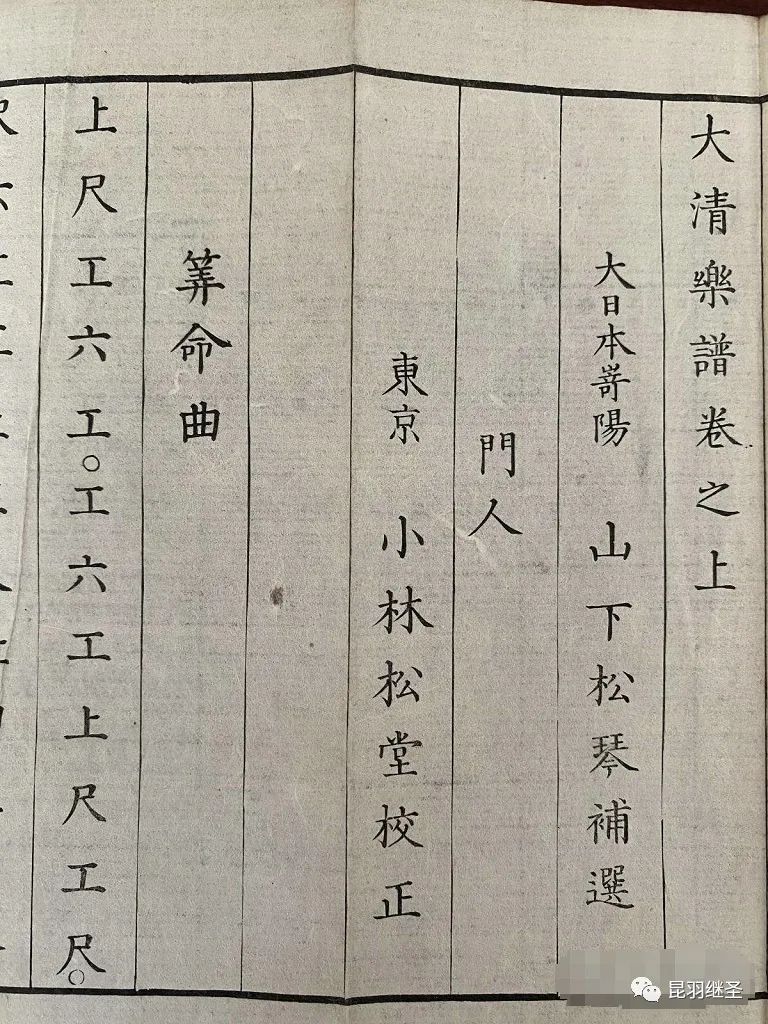 大清樂譜卷之上
大日本嵜陽 山下松琴補選
門人
東京 小林松堂校正
筭命曲
上尺工六工。工六工上尺工尺。
昆羽继圣